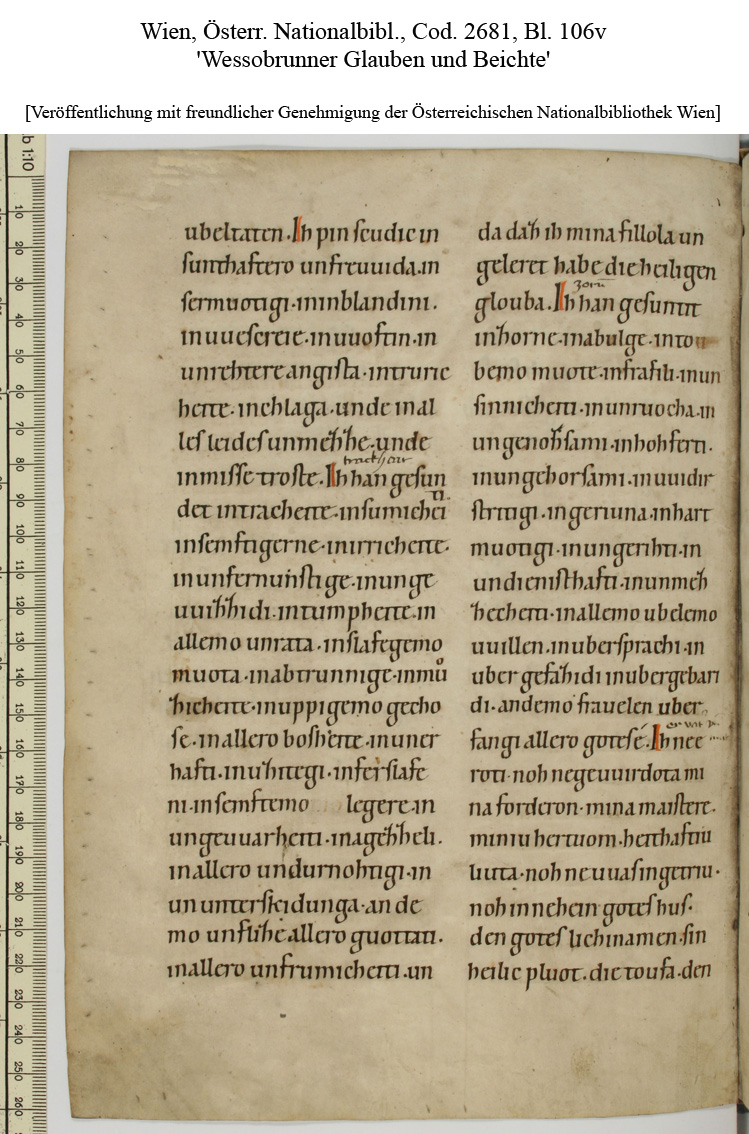 Wien, Österr. Nationalbibl., Cod. 2681, Bl. 106v
'Wessobrunner Glauben und Beichte'
[Veröffentlichung mit freundlicher Genehmigung der Österreichischen Nationalbibliothek Wien]
ubeltaten. Ih pin sculdic in
sunthaftero unfreuuida. in
sermuotigi. in inblandini.
in uueiscreie. in uuoftin. in
unrehtere angista. in truric
heite. in chlaga. unde in al
les leides unmehhe. unde
in misse troste. Ih han gesun
det in tracheite. in sumicheiti
in semftigerne. in irricheite.
in unfernunstige. in unge
uuihhidi. in tumpheite. in
allemo unrata. in slafegemo
muota. in abtrunnige. in mů
hicheite. in uppigemo gecho
se. in allero bosheite. in uner
hafti. in uhitegi. in ferslafe
ni. in semftemo legere. in
ungeuuarheiti. in agehheli.
in allero undurnohtigi. in
un unterskidunga. an de
mo unflihe allero guottati.
in allero unfrumicheiti. un
da dah ih mina fillola un
geleret habe die heiligen
zorn
glouba. Ih han gesuntit
in horne. in abulge. in tou
bemo muote. in frafili. in un
sinnicheiti. in unruocha. in
ungenohsami. in hohferti.
in ungehorsami. in uuidir
stritigi. in geriuna. in hart
muotigi. in ungerihti. in
undiensthafti. in unmeh
hecheiti. in allemo ubelemo
uuillen. in ubersprachi. in
ubergefahidi in ubergebari
di. an demo frauelen uber
fangi allero gotes é. Ih nee
roti noh negeuuirdota mi
na forderon. mina maistere.
miniu hertuom. heithaftiu
liuta. noh neuuas in getriu.
noh in nehein gotes hus.
den gotes lichinamen. sin
heilic pluot. die toufa. den